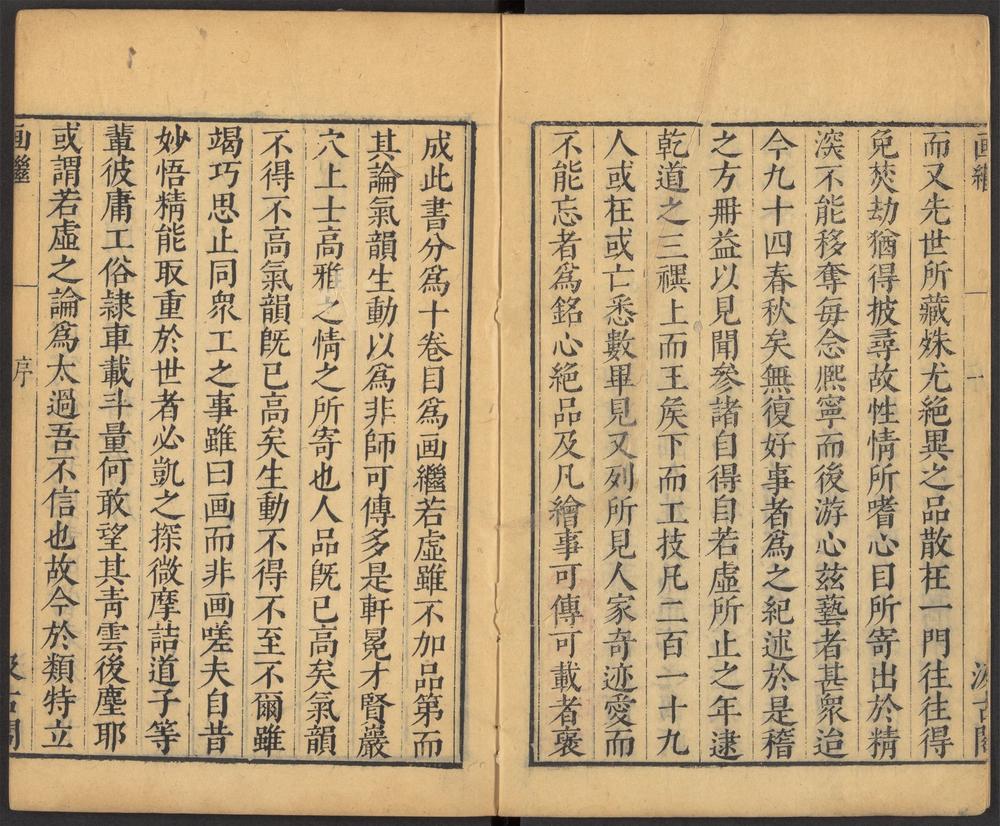 画繼 一 一 汲古閣
而又先世所藏姝尤絶異之品散在一門往往得
免焚劫猶得披尋故性情所嗜心目所寄出於精
深不能移奪毎念熈寧而後游心兹藝者甚衆迨
今九十四春秋矣無復好事者爲之紀述於是稽
之方冊益以見聞參諸自得自若虛所止之年逮
乾道之三禩上而王矦下而工技凡二百一十九
人或在或亡悉數畢見又列所見人家奇迹愛而
不能忘者爲銘心絶品及凡繪事可傳可載者裒
成此書分爲十卷目爲画繼若虛雖不加品第而
其論氣韻生動以爲非師可傳多是軒冕才賢巖
穴上士高雅之情之所寄也人品旣已高矣氣韻
不得不高氣韻旣已高矣生動不得不至不爾雖
竭巧思止同衆工之事雖曰画而非画嗟夫自昔
妙悟精能取重於世者必凱之探微摩詰道子等
輩彼庸工俗隷車載斗量何敢望其靑雲後塵耶
或謂若虛之論爲太過吾不信也故今於類特立
画繼 序 汲古閣